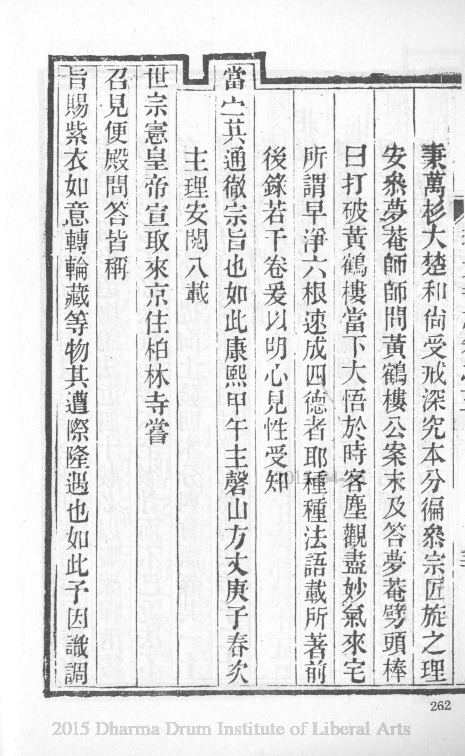 秉萬杉大楚和尚受戒深究本分徧叅宗匠旋之理
安叅夢菴師師問黃鶴樓公案未及答夢菴劈頭棒
曰打破黃鶴樓當下大悟於時客塵觀盡妙氣來宅
所謂早淨六根速成四德者耶種種法語載所著前
後錄若干卷爰以明心見性受知
當宁其通徹宗旨也如此康熙甲午主磬山方丈庚子春次
主理安閱八載
世宗憲皇帝宣取來京住柏林寺嘗
召見便殿問答皆稱
旨賜紫衣如意轉輪藏等物其遭際隆遇也如此予因識調
262
2015 Dharma Drum Institute of Liberal Arts